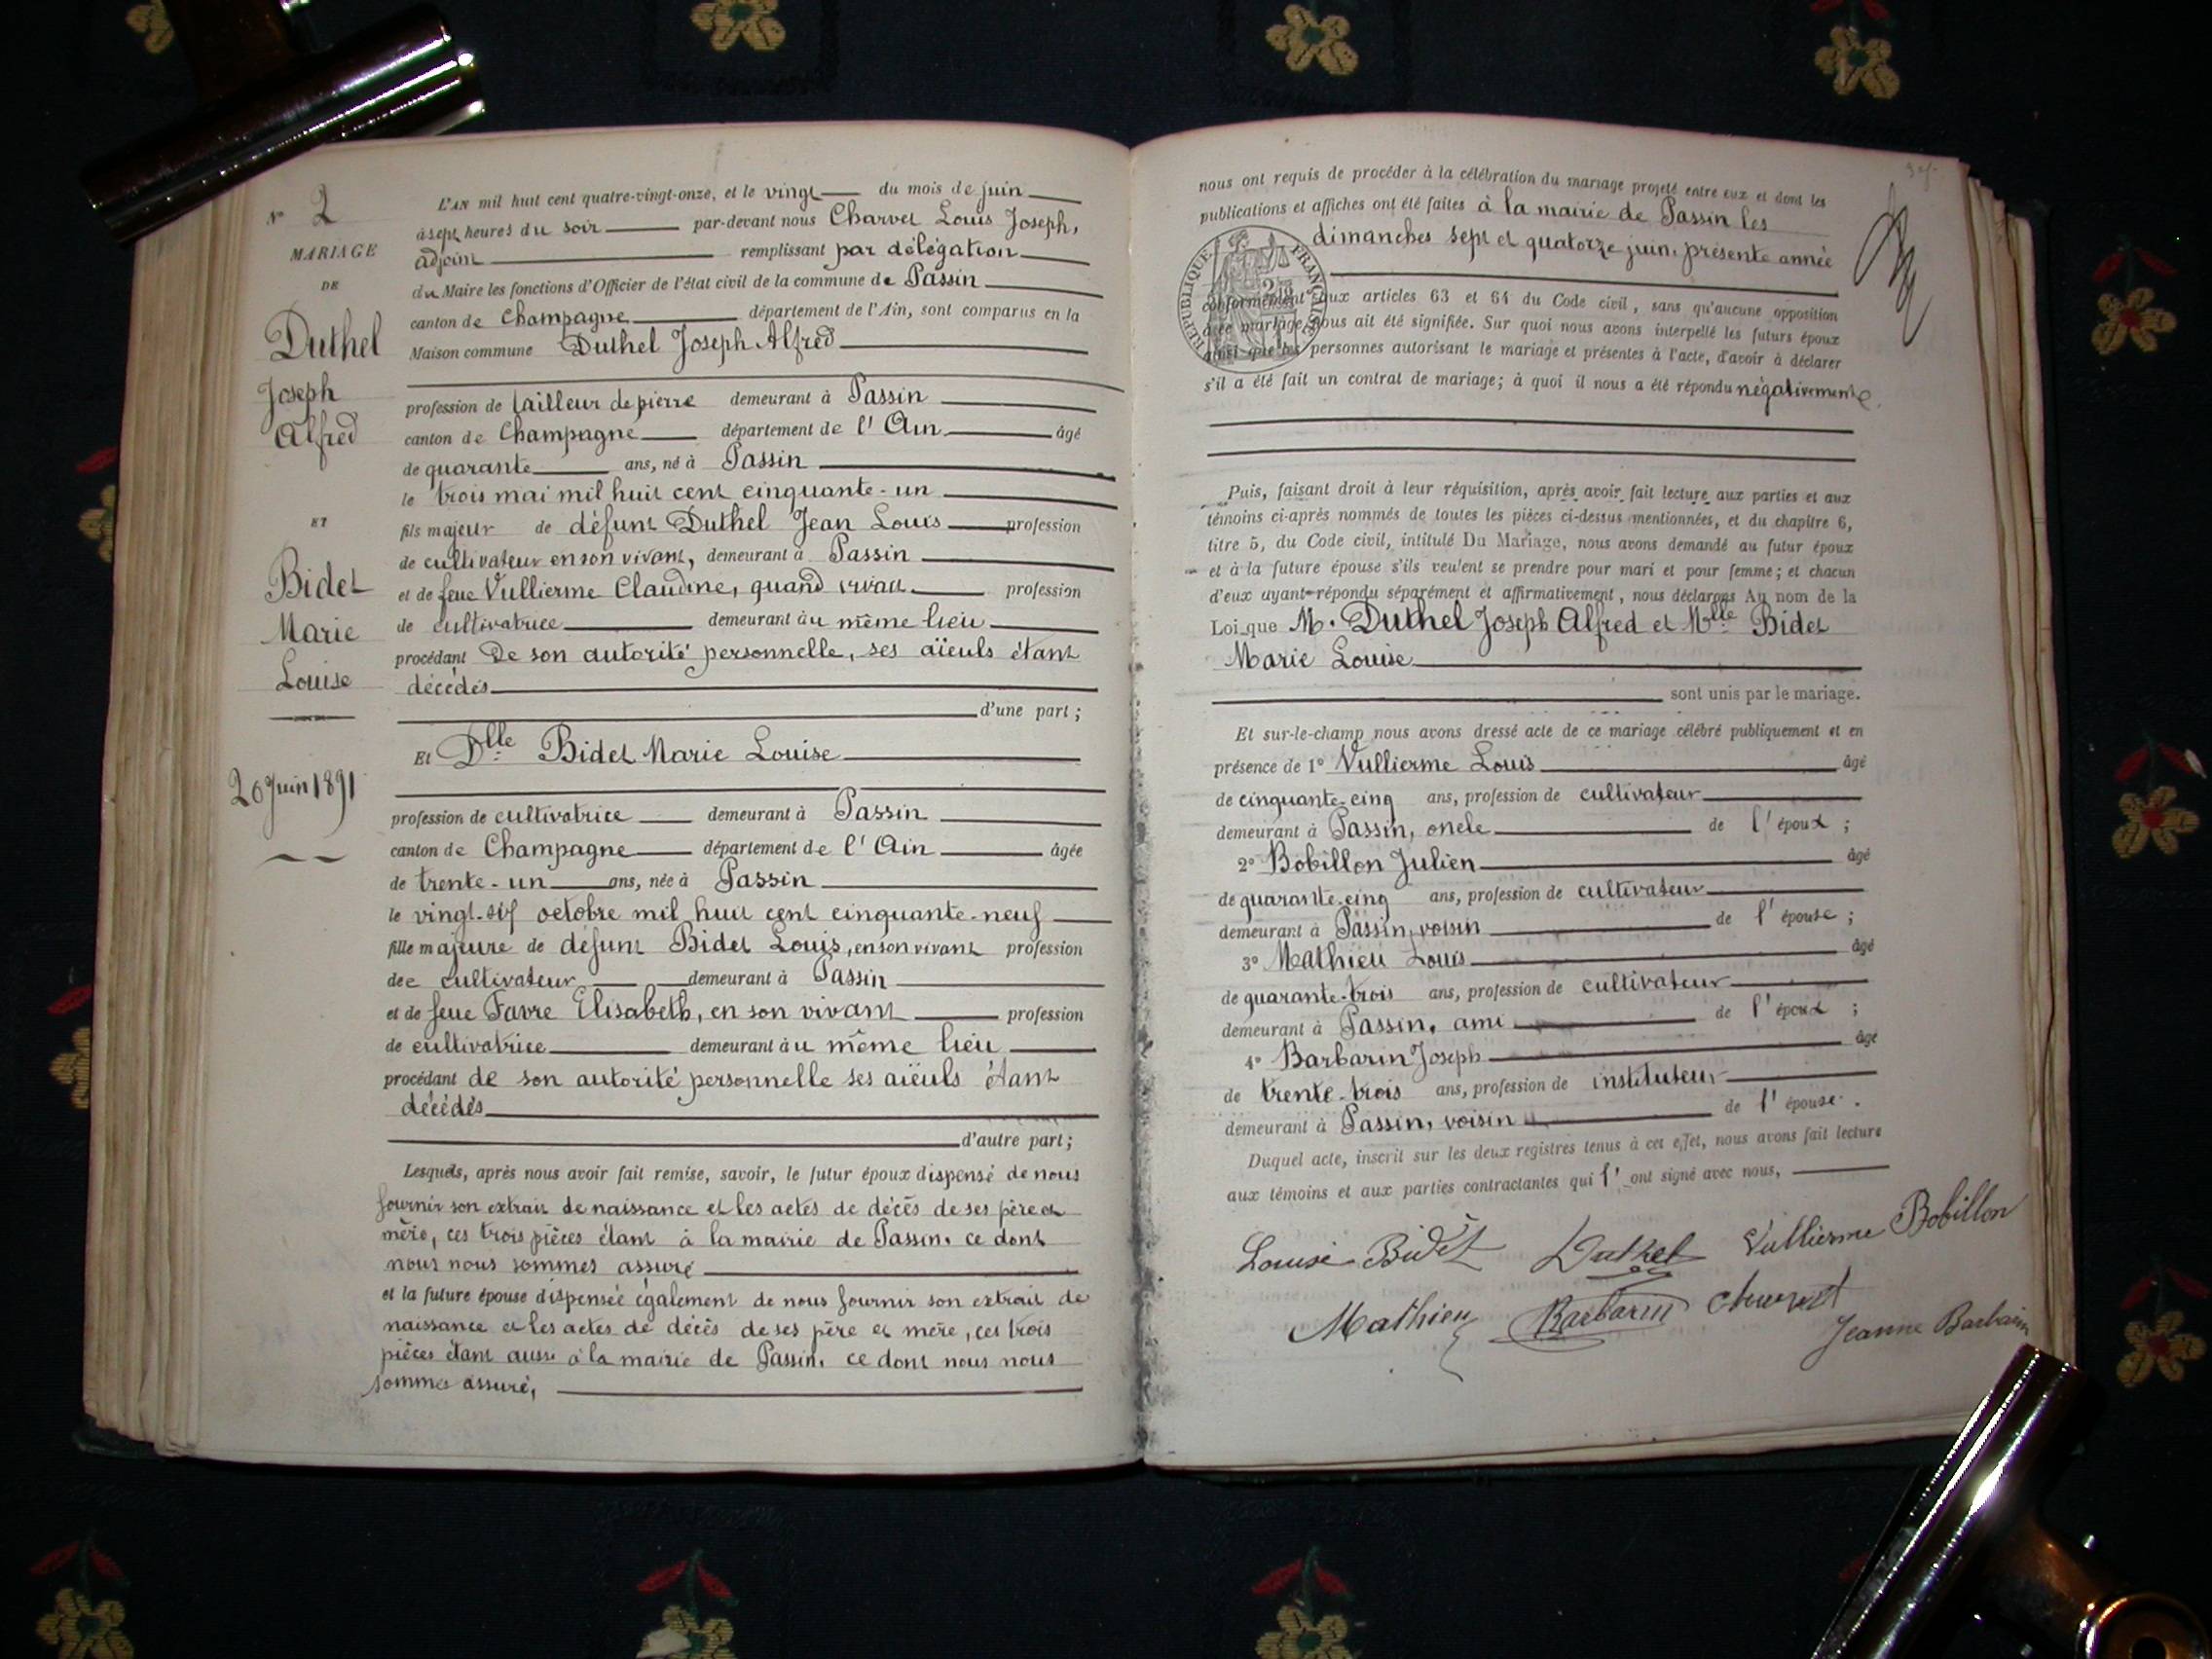 N° 2
MARIAGE
DE
Duthel
Joseph
Alfred
ET
Bidet
Marie
Louise
20 Juin 1891
L'AN mil huit cent quatre-vingt-onze, et le vingt du mois de juin
à sept heures du soir par-devant nous Charvet Louis Joseph,
adjoint remplissant par délégation
du Maire les fonctions d'Officier de l'état civil de la commune de Passin
canton de Champagne département de l'Ain, sont comparus en la
Maison commune Duthel Joseph Alfred
profession de tailleur de pierre demeurant à Passin
canton de Champagne département de l'Ain âgé
de quarante ans, né à Passin
le trois mai mil huit cent cinquante-un
fils majeur de défunt Duthel Jean Louis profession
de cultivateur en son vivant, demeurant à Passin
et de feue Vullierme Claudine, quand vivait profession
de cultivatrice demeurant au même lieu
procédant de son autorité personnelle, ses aïeuls étant
décédés
d'une part;
Et Dlle Bidet Marie Louise
profession de cultivatrice demeurant à Passin
canton de Champagne département de l'Ain âgée
de trente-un ans, née à Passin
le vingt-six octobre mil huit cent cinquante-neuf
fille majeure de défunt Bidet Louis, en son vivant profession
de cultivateur demeurant à Passin
et de feue Favre Elisabeth, en son vivant profession
de cultivatrice demeurant au même lieu
procédant de son autorité personnelle ses aïeuls étant
décédés
d'autre part;
Lesquels, après nous avoir fait remise, savoir, le futur époux dispensé de nous
fournir son extrait de naissance et les actes de décès de ses père et
mère, ces trois pièces étant à la mairie de Passin. ce dont
nous nous sommes assuré
et la future épouse dispensée également de nous fournir son extrait de
naissance et les actes de décès de ses père et mère, ces trois
pièces étant aussi à la mairie de Passin. ce dont nous nous
sommes assuré,
nous ont requis de procéder à la célébration du mariage projeté entre eux et dont les
publications et affiches ont été faites à la mairie de Passin les
dimanches sept et quatorze juin, présente année
RÉPUBLIQUE FRANÇAISE
conformément aux articles 63 et 64 du Code civil, sans qu'aucune opposition
à ce mariage nous ait été signifiée. Sur quoi nous avons interpellé les futurs époux
ainsi que les personnes autorisant le mariage et présentes à l'acte, d'avoir à déclarer
s'il a été fait un contrat de mariage; à quoi il nous a été répondu négativement.
Puis, faisant droit à leur réquisition, après avoir fait lecture aux parties et aux
témoins ci-après nommés de toutes les pièces ci-dessus mentionnées, et du chapitre 6,
titre 5, du Code civil, intitulé Du Mariage, nous avons demandé au futur époux
et à la future épouse s'ils veulent se prendre pour mari et pour femme; et chacun
d'eux ayant répondu séparément et affirmativement, nous déclarons Au nom de la
Loi que M. Duthel Joseph Alfred et Mlle Bidet
Marie Louise
sont unis par le mariage.
Et sur-le-champ nous avons dressé acte de ce mariage célébré publiquement et en
présence de 1° Vullierme Louis âgé
de cinquante-cinq ans, profession de cultivateur
demeurant à Passin, oncle de l'époux;
2° Bobillon Julien âgé
de quarante-cinq ans, profession de cultivateur
demeurant à Passin, voisin de l'épouse;
3° Mathieu Louis âgé
de quarante-trois ans, profession de cultivateur
demeurant à Passin, ami de l'époux;
4° Barbarin Joseph âgé
de trente-trois ans, profession de instituteur
demeurant à Passin, voisin de l'épouse.
Duquel acte, inscrit sur les deux registres tenus à cet effet, nous avons fait lecture
aux témoins et aux parties contractantes qui l'ont signé avec nous,
Louise Bidet Duthel Vullierme Bobillon
Mathieu Barbarin Charvet
Jeanne Barbarin